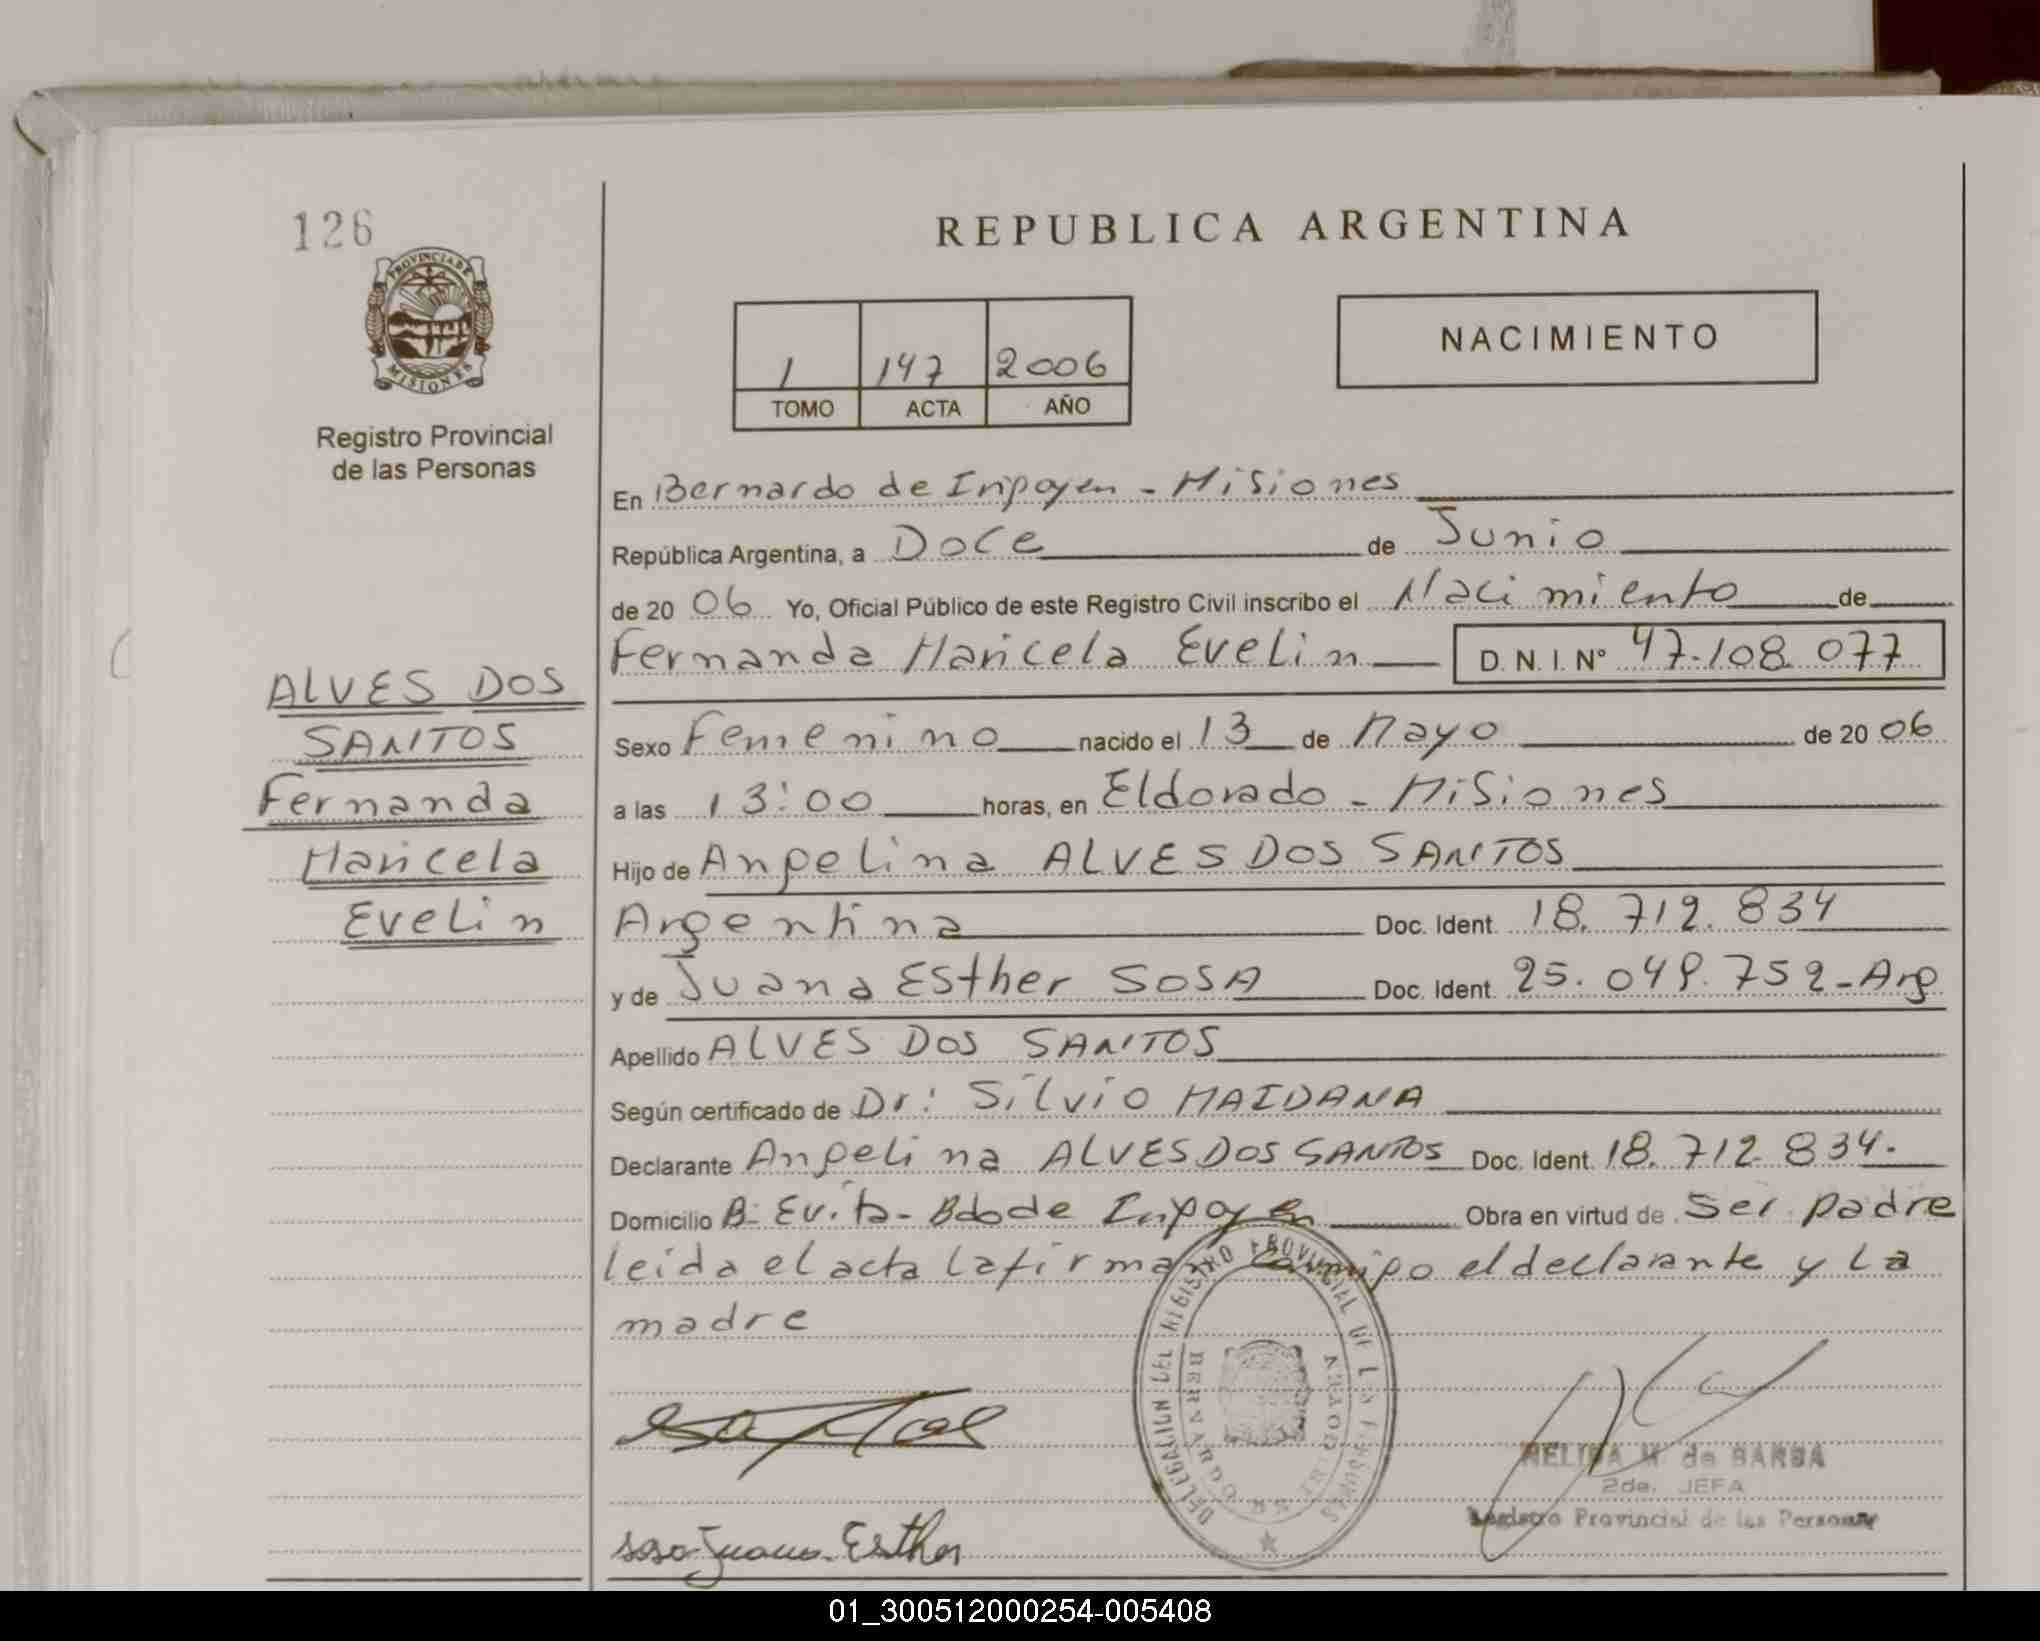 126
PROVINCIA DE
MISIONES
Registro Provincial
de las Personas
REPUBLICA ARGENTINA
1 147 2006
TOMO ACTA AÑO
NACIMIENTO
En Bernardo de Irigoyen - Misiones
República Argentina, a Doce de Junio
de 20 06 Yo, Oficial Público de este Registro Civil inscribo el Nacimiento de
Fernanda Maricela Evelin D. N. I. Nº 47.108.077
ALVES DOS
SANTOS
Fernanda
Maricela
Evelin
Sexo Femenino nacido el 13 de Mayo de 20 06
a las 13:00 horas, en Eldorado - Misiones
Hijo de Angelina ALVES DOS SANTOS
Argentina Doc. Ident. 18.712.834
y de Juana Esther SOSA Doc. Ident. 25.049.752-Arg
Apellido ALVES DOS SANTOS
Según certificado de Dr: Silvio MAIDANA
Declarante Angelina ALVES DOS SANTOS Doc. Ident. 18.712.834.
Domicilio B: Evita - Bdo de Irigoyen Obra en virtud de Ser padre
leida el acta la firman conmigo el declarante y la
madre
DELEGACION DEL REGISTRO PROVINCIAL DE LAS PERSONAS
BERNARDO DE IRIGOYEN
Sosa Juana Esther
M. de BARBA
2da. JEFA
Registro Provincial de las Personas
01_300512000254-005408